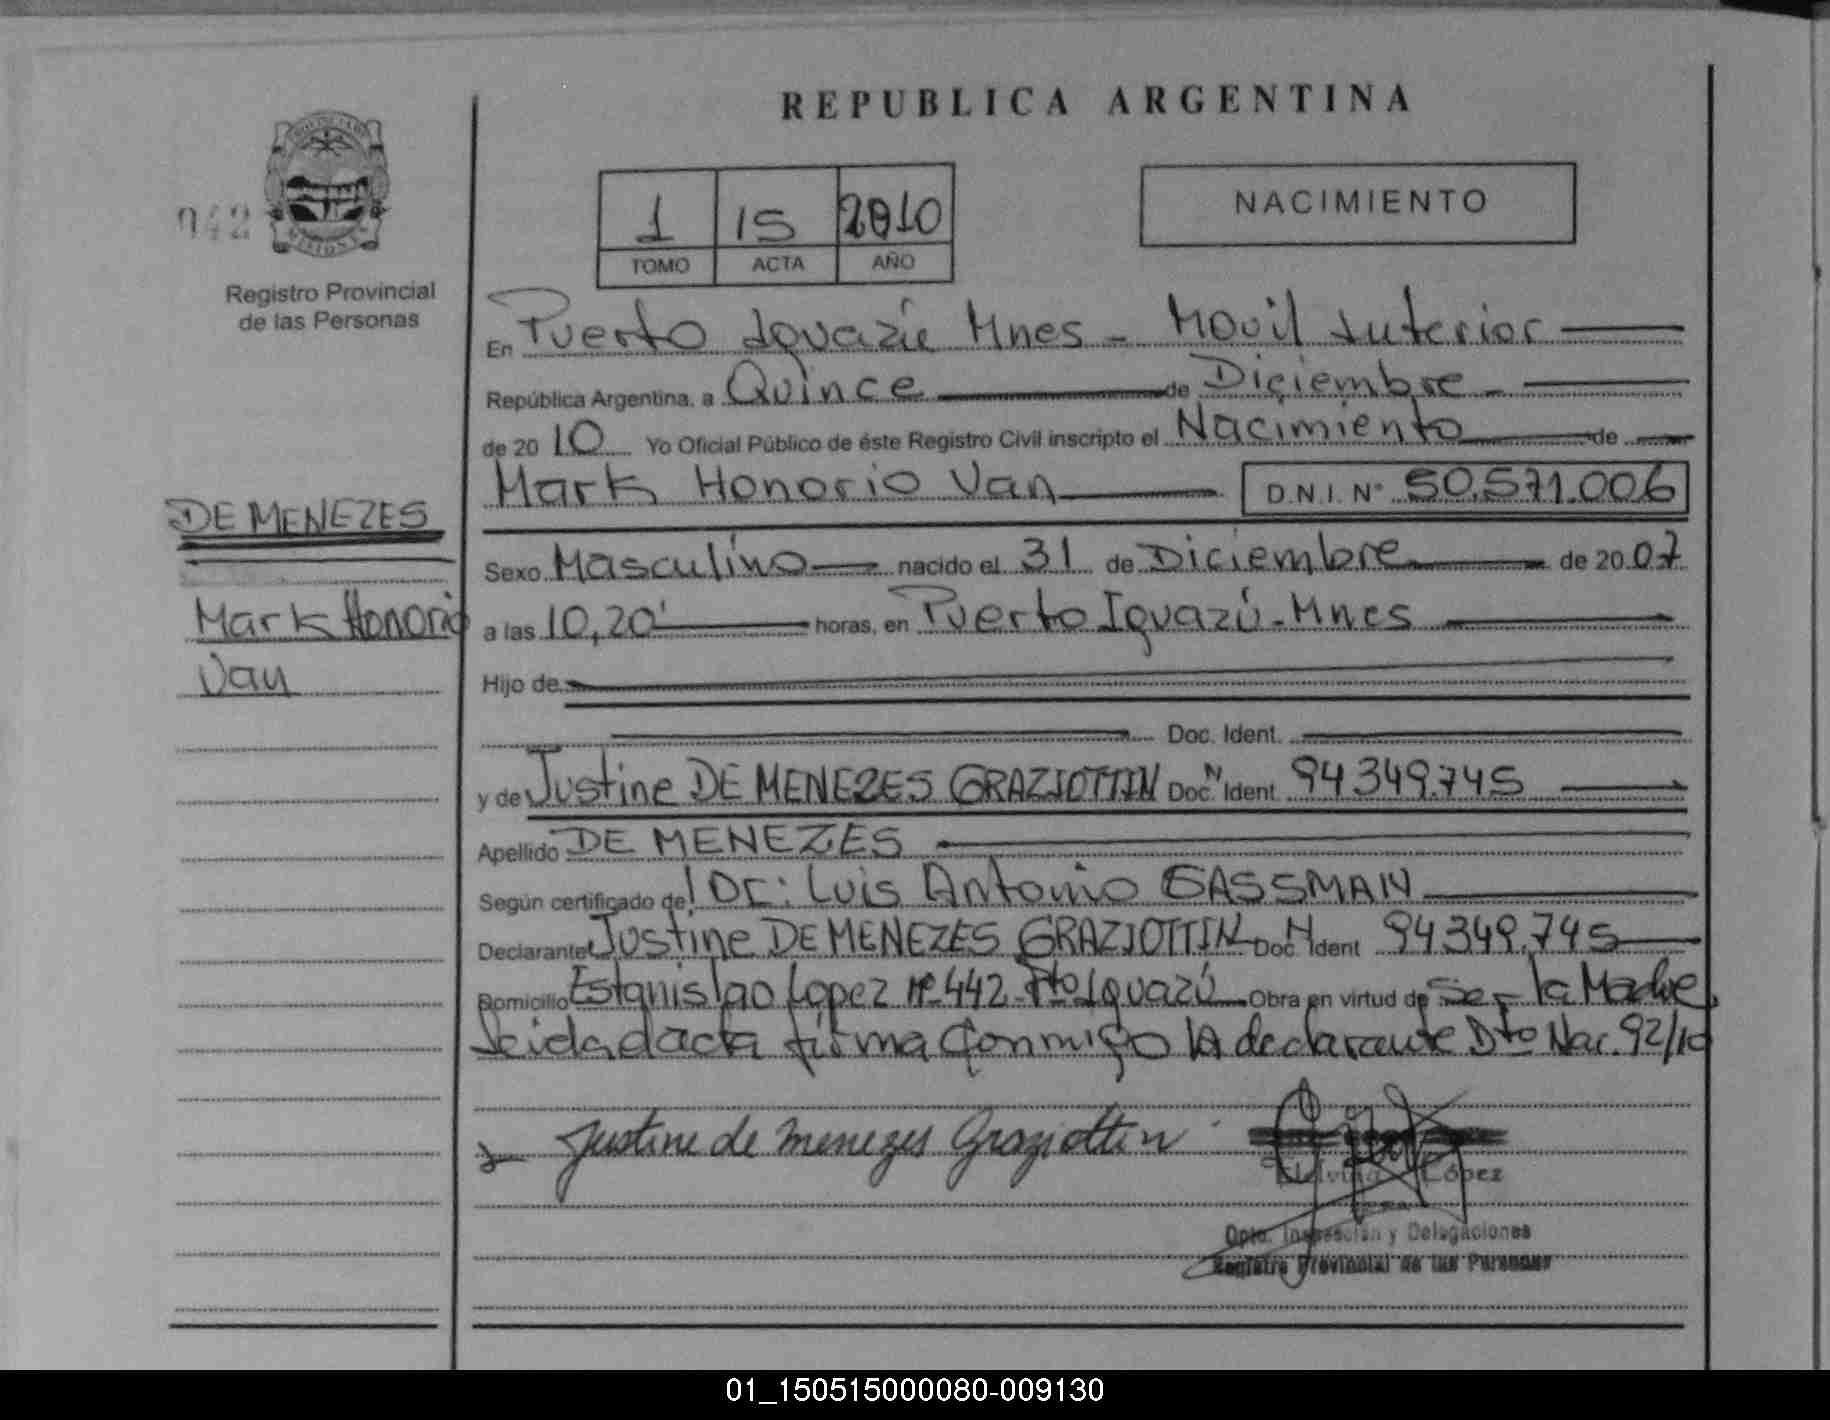 REPUBLICA ARGENTINA
PROVINCIA DE
MISIONES
942
Registro Provincial
de las Personas
1 15 2010
TOMO ACTA AÑO
NACIMIENTO
En Puerto Iguazú Mnes - Movil Interior
República Argentina, a Quince de Diciembre -
de 20 10 Yo Oficial Público de éste Registro Civil inscripto el Nacimiento de
Mark Honorio Van D.N.I. Nº 50.571.006
DE MENEZES
Mark Honorio
Van
Sexo Masculino nacido el 31 de Diciembre de 20 07
a las 10,20' horas, en Puerto Iguazú - Mnes
Hijo de
Doc. Ident.
y de Justine DE MENEZES GRAZIOTTIN Doc. N Ident 94349.745
Apellido DE MENEZES
Según certificado de: Dr: Luis Antonio GASSMAN
Declarante Justine DE MENEZES GRAZIOTTIN Doc N Ident 94349.745
Domicilio Estanislao Lopez Nº 442 - Pto Iguazú Obra en virtud de Ser la Madre,
Leida el acta firma conmigo la declarante Dto Nac. 92/10
Justine de Menezes Graziottin
López
Dpto. Inspección y Delegaciones
Registro Provincial de las Personas
01_150515000080-009130